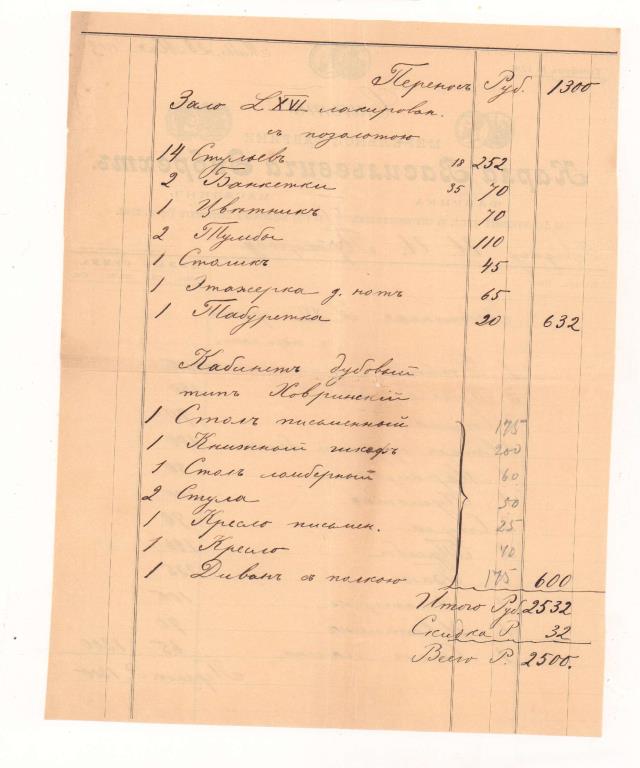 Переносъ Руб. 1300
Зало L XVI лакирован.
съ позолотою
14 Стульевъ 18 252
2 Банкетки 35 70
1 Цвѣтникъ 70
2 Тумбы 110
1 Столикъ 45
1 Этажерка д. нотъ 65
1 Табуретка 20 632
Кабинетъ дубовый
типъ Ховринскій
1 Столъ письменный 175
1 Книжный шкафъ 200
1 Столъ ломберный 60
2 Стула 50
1 Кресло письмен. 25
1 Кресло 40
1 Диванъ съ полкою 175 600
Итого Руб. 2532
Скидка Р. 32
Всего Р. 2500.